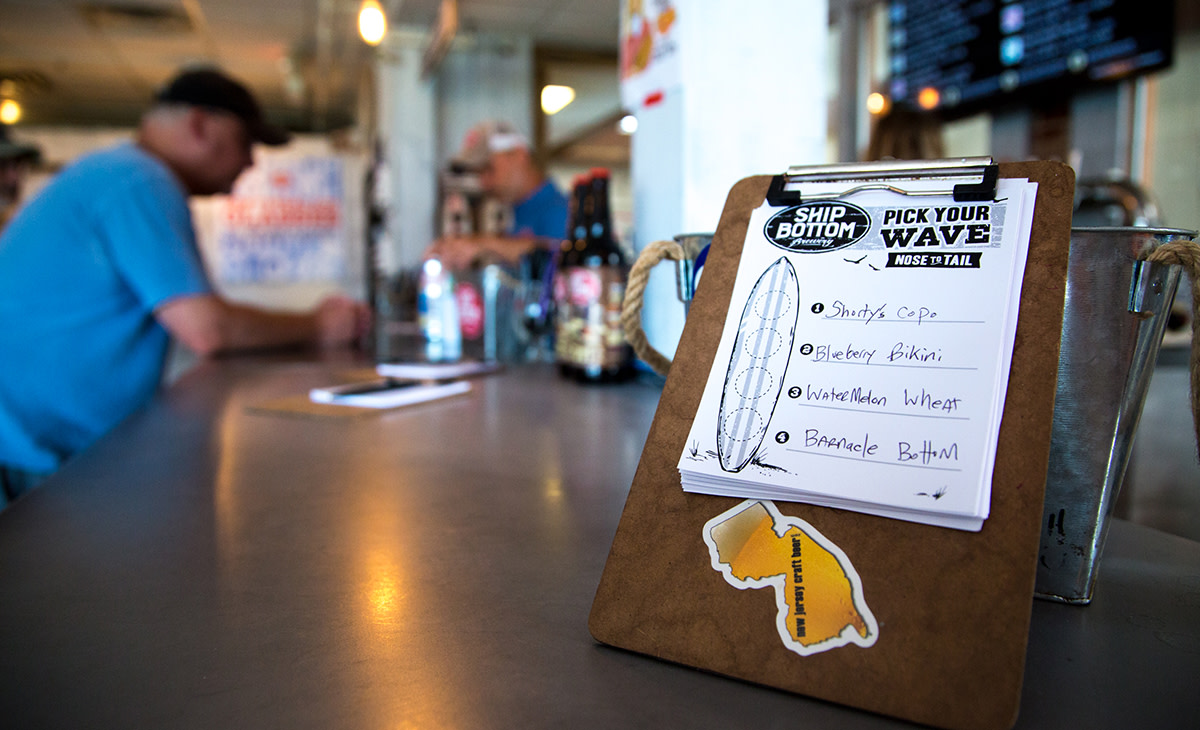 SHIP
BOTTOM
Brewery
PICK YOUR
WAVE
NOSE TO TAIL
1 Shorty's Copo
2 Blueberry Bikini
3 WaterMelon Wheat
4 Barnacle Bottom
new jersey craft beer!